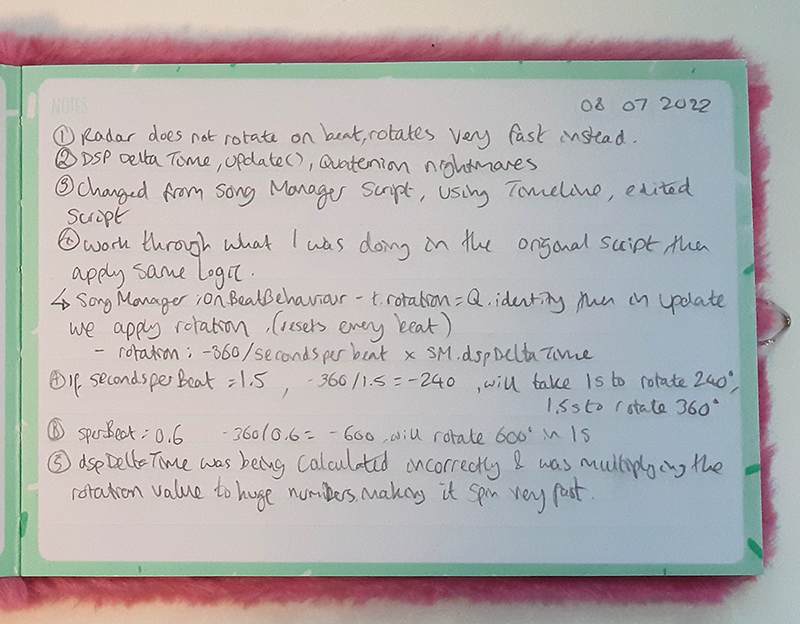 NOTES
08 07 2022
① Radar does not rotate on beat, rotates very fast instead.
② DSP Delta Time, Update(), Quaternion nightmares
③ Changed from Song Manager Script, using Timeline, edited
script
④ work through what I was doing in the original script then
apply same logic.
↳ SongManager : OnBeatBehaviour - t.rotation = Q.identity then in update
we apply rotation, (resets every beat)
- rotation : -360/secondsperbeat x SM.dspDeltaTime
Ⓐ If secondsperBeat = 1.5 , -360/1.5 = -240 , will take 1s to rotate 240°,
1.5s to rotate 360°
Ⓑ sperBeat = 0.6 -360/0.6 = -600, will rotate 600° in 1s
⑤ dspDeltaTime was being calculated incorrectly & was multiplying the
rotation value to huge numbers, making it spin very fast.